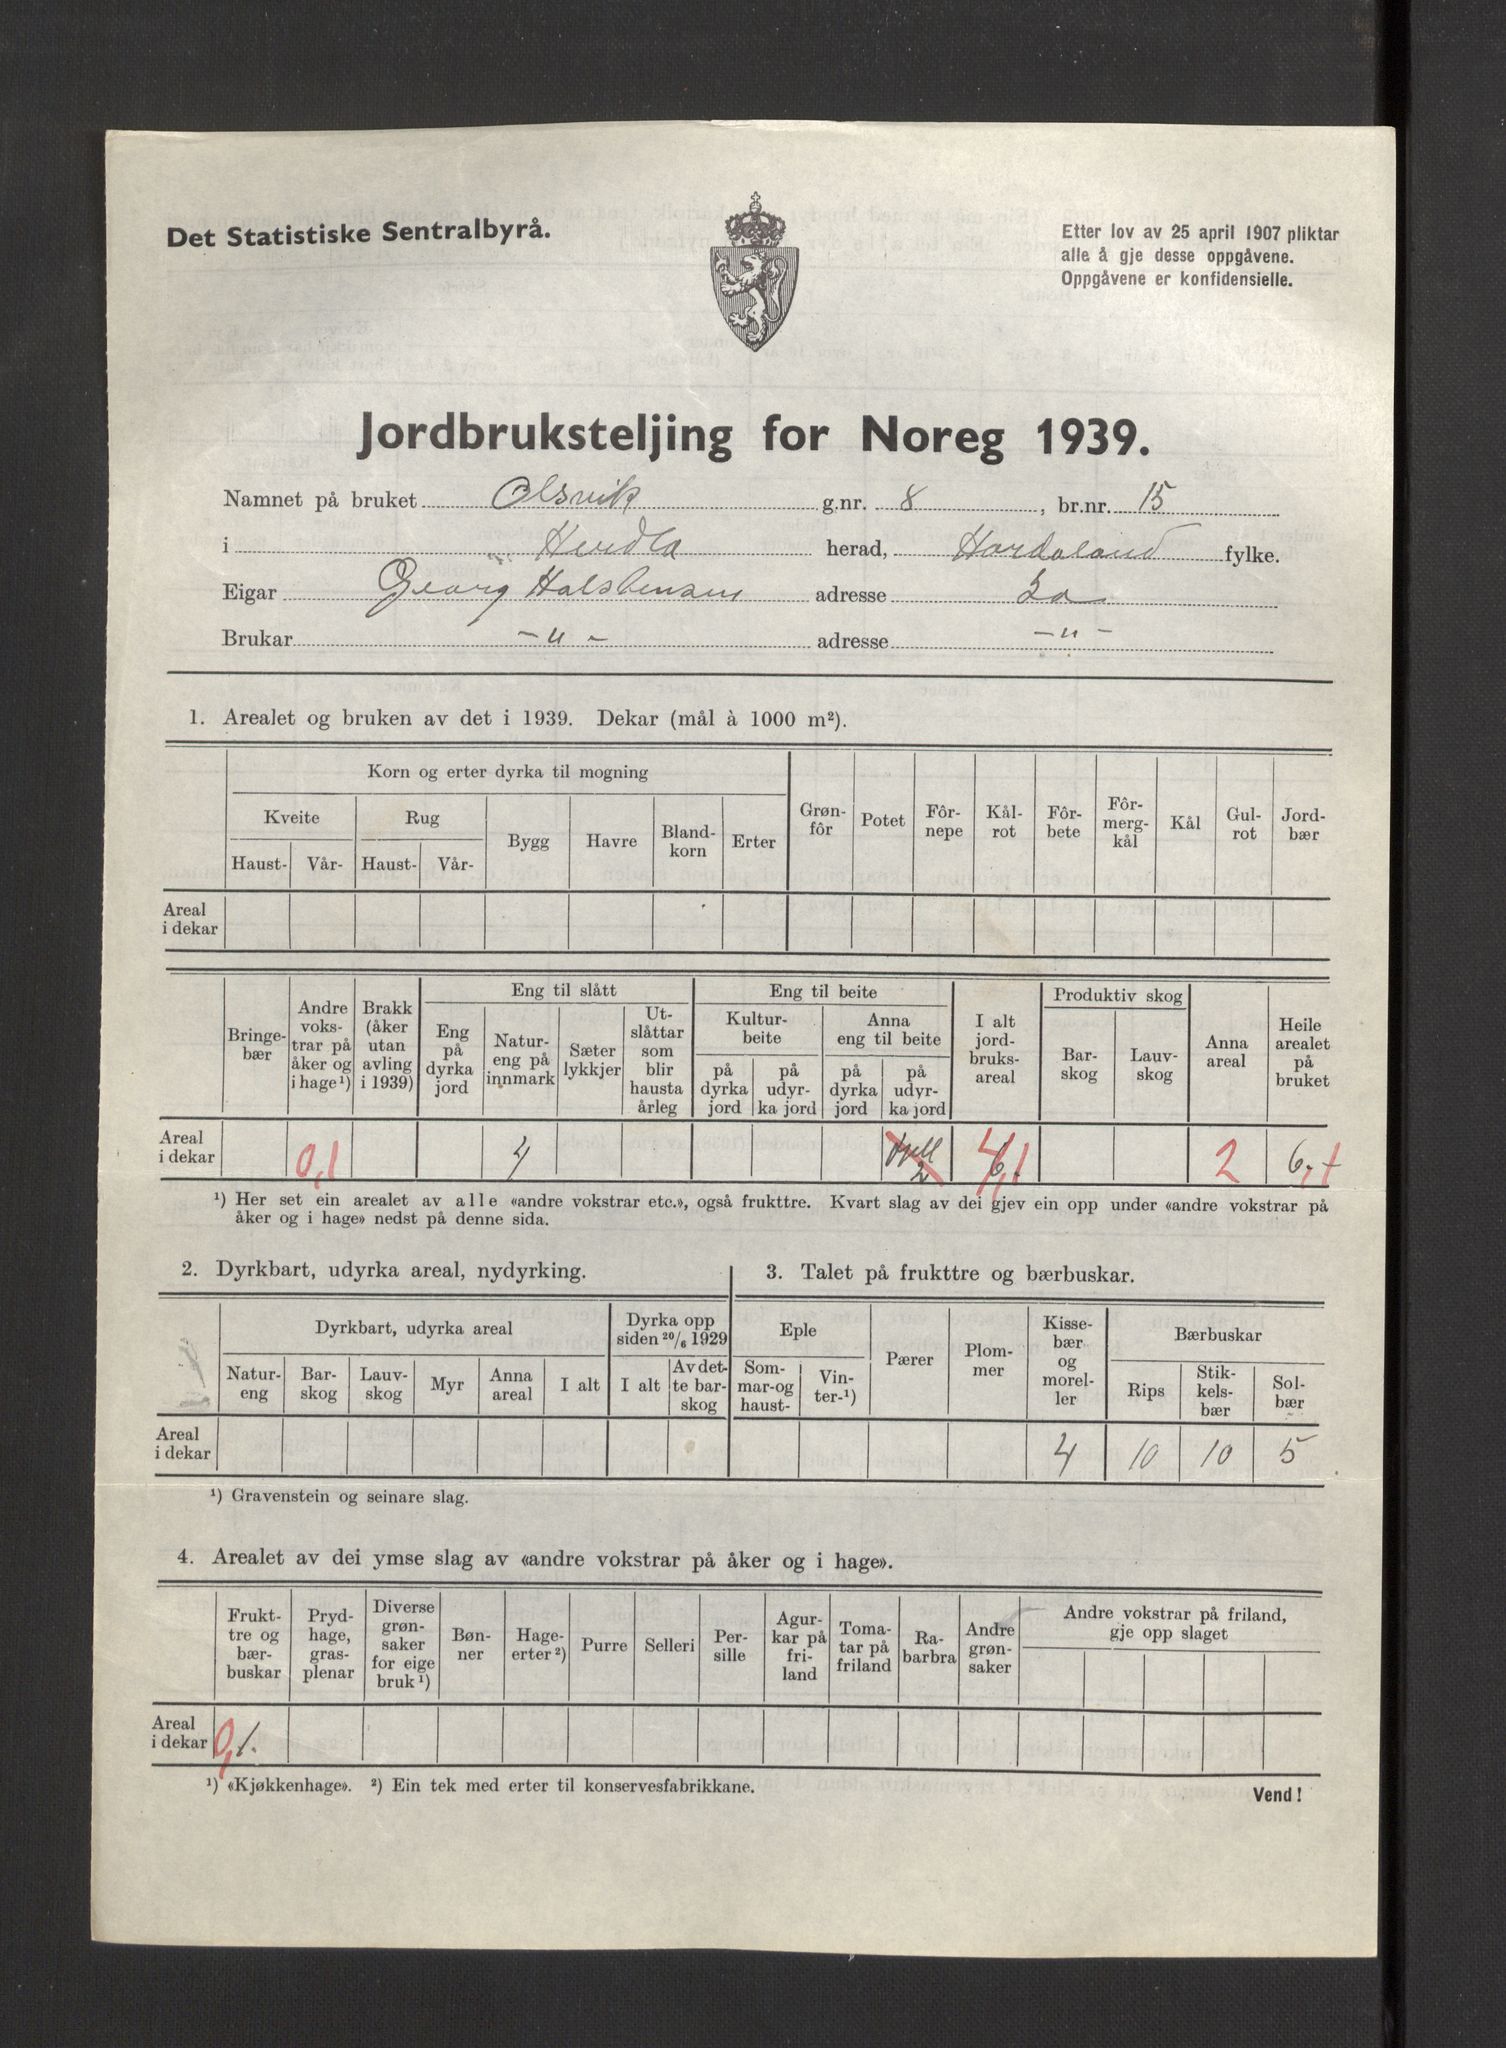 Det Statistiske Sentralbyrå.
Etter lov av 25 april 1907 pliktar
alle å gje desse oppgåvene.
Oppgåvene er konfidensielle.
Jordbruksteljing for Noreg 1939.
Namnet på bruket Olsvik g.nr. 8, br.nr. 15
i Herdla herad, Hordaland fylke.
Eigar Georg adresse
Brukar -"- adresse -"-
1. Arealet og bruken av det i 1939. Dekar (mål à 1000 m²).
Korn og erter dyrka til mogning
Kveite Rug
Haust- Vår- Haust- Vår-
Bygg Havre Bland-
korn Erter
Grøn-
fôr Potet Fôr-
nepe Kål-
rot Fôr-
bete Fôr-
merg-
kål Kål Gul-
rot Jord-
bær
Areal
i dekar
Bringe-
bær
Andre
voks-
trar på
åker og
i hage¹)
Brakk
(åker
utan
avling
i 1939)
Eng til slått
Eng
på
dyrka
jord
Natur-
eng på
innmark
Sæter
lykkjer
Ut-
slåttar
som
blir
hausta
årleg
Eng til beite
Kultur-
beite
på
dyrka
jord
på
udyr-
ka jord
Anna
eng til beite
på
dyrka
jord
på
udyr-
ka jord
I alt
jord-
bruks-
areal
Produktiv skog
Bar-
skog
Lauv-
skog
Anna
areal
Heile
arealet
på
bruket
Areal
i dekar 0,1 4 2 4,1 6,- 2 6,1
¹) Her set ein arealet av alle «andre vokstrar etc.», også frukttre. Kvart slag av dei gjev ein opp under «andre vokstrar på
åker og i hage» nedst på denne sida.
2. Dyrkbart, udyrka areal, nydyrking.
Dyrkbart, udyrka areal
Natur-
eng
Bar-
skog
Lauv-
skog
Myr
Anna
areal
I alt
Dyrka opp
siden 20/6 1929
I alt
Av det-
te bar-
skog
Areal
i dekar
¹) Gravenstein og seinare slag.
3. Talet på frukttre og bærbuskar.
Eple
Som-
mar-og
haust-
Vin-
ter-¹)
Pærer
Plom-
mer
Kisse-
bær
og
morel-
ler
Bærbuskar
Rips
Stik-
kels-
bær
Sol-
bær
4 10 10 5
4. Arealet av dei ymse slag av «andre vokstrar på åker og i hage».
Frukt-
tre og
bær-
buskar
Pryd-
hage,
gras-
plenar
Diverse
grøn-
saker
for eige
bruk¹)
Bøn-
ner
Hage-
erter²)
Purre
Selleri
Per-
sille
Agur-
kar på
fri-
land
Toma-
tar på
friland
Ra-
barbra
Andre
grøn-
saker
Andre vokstrar på friland,
gje opp slaget
Areal
i dekar 0,1.
¹) «Kjøkkenhage». ²) Ein tek med erter til konservesfabrikkane.
Vend!